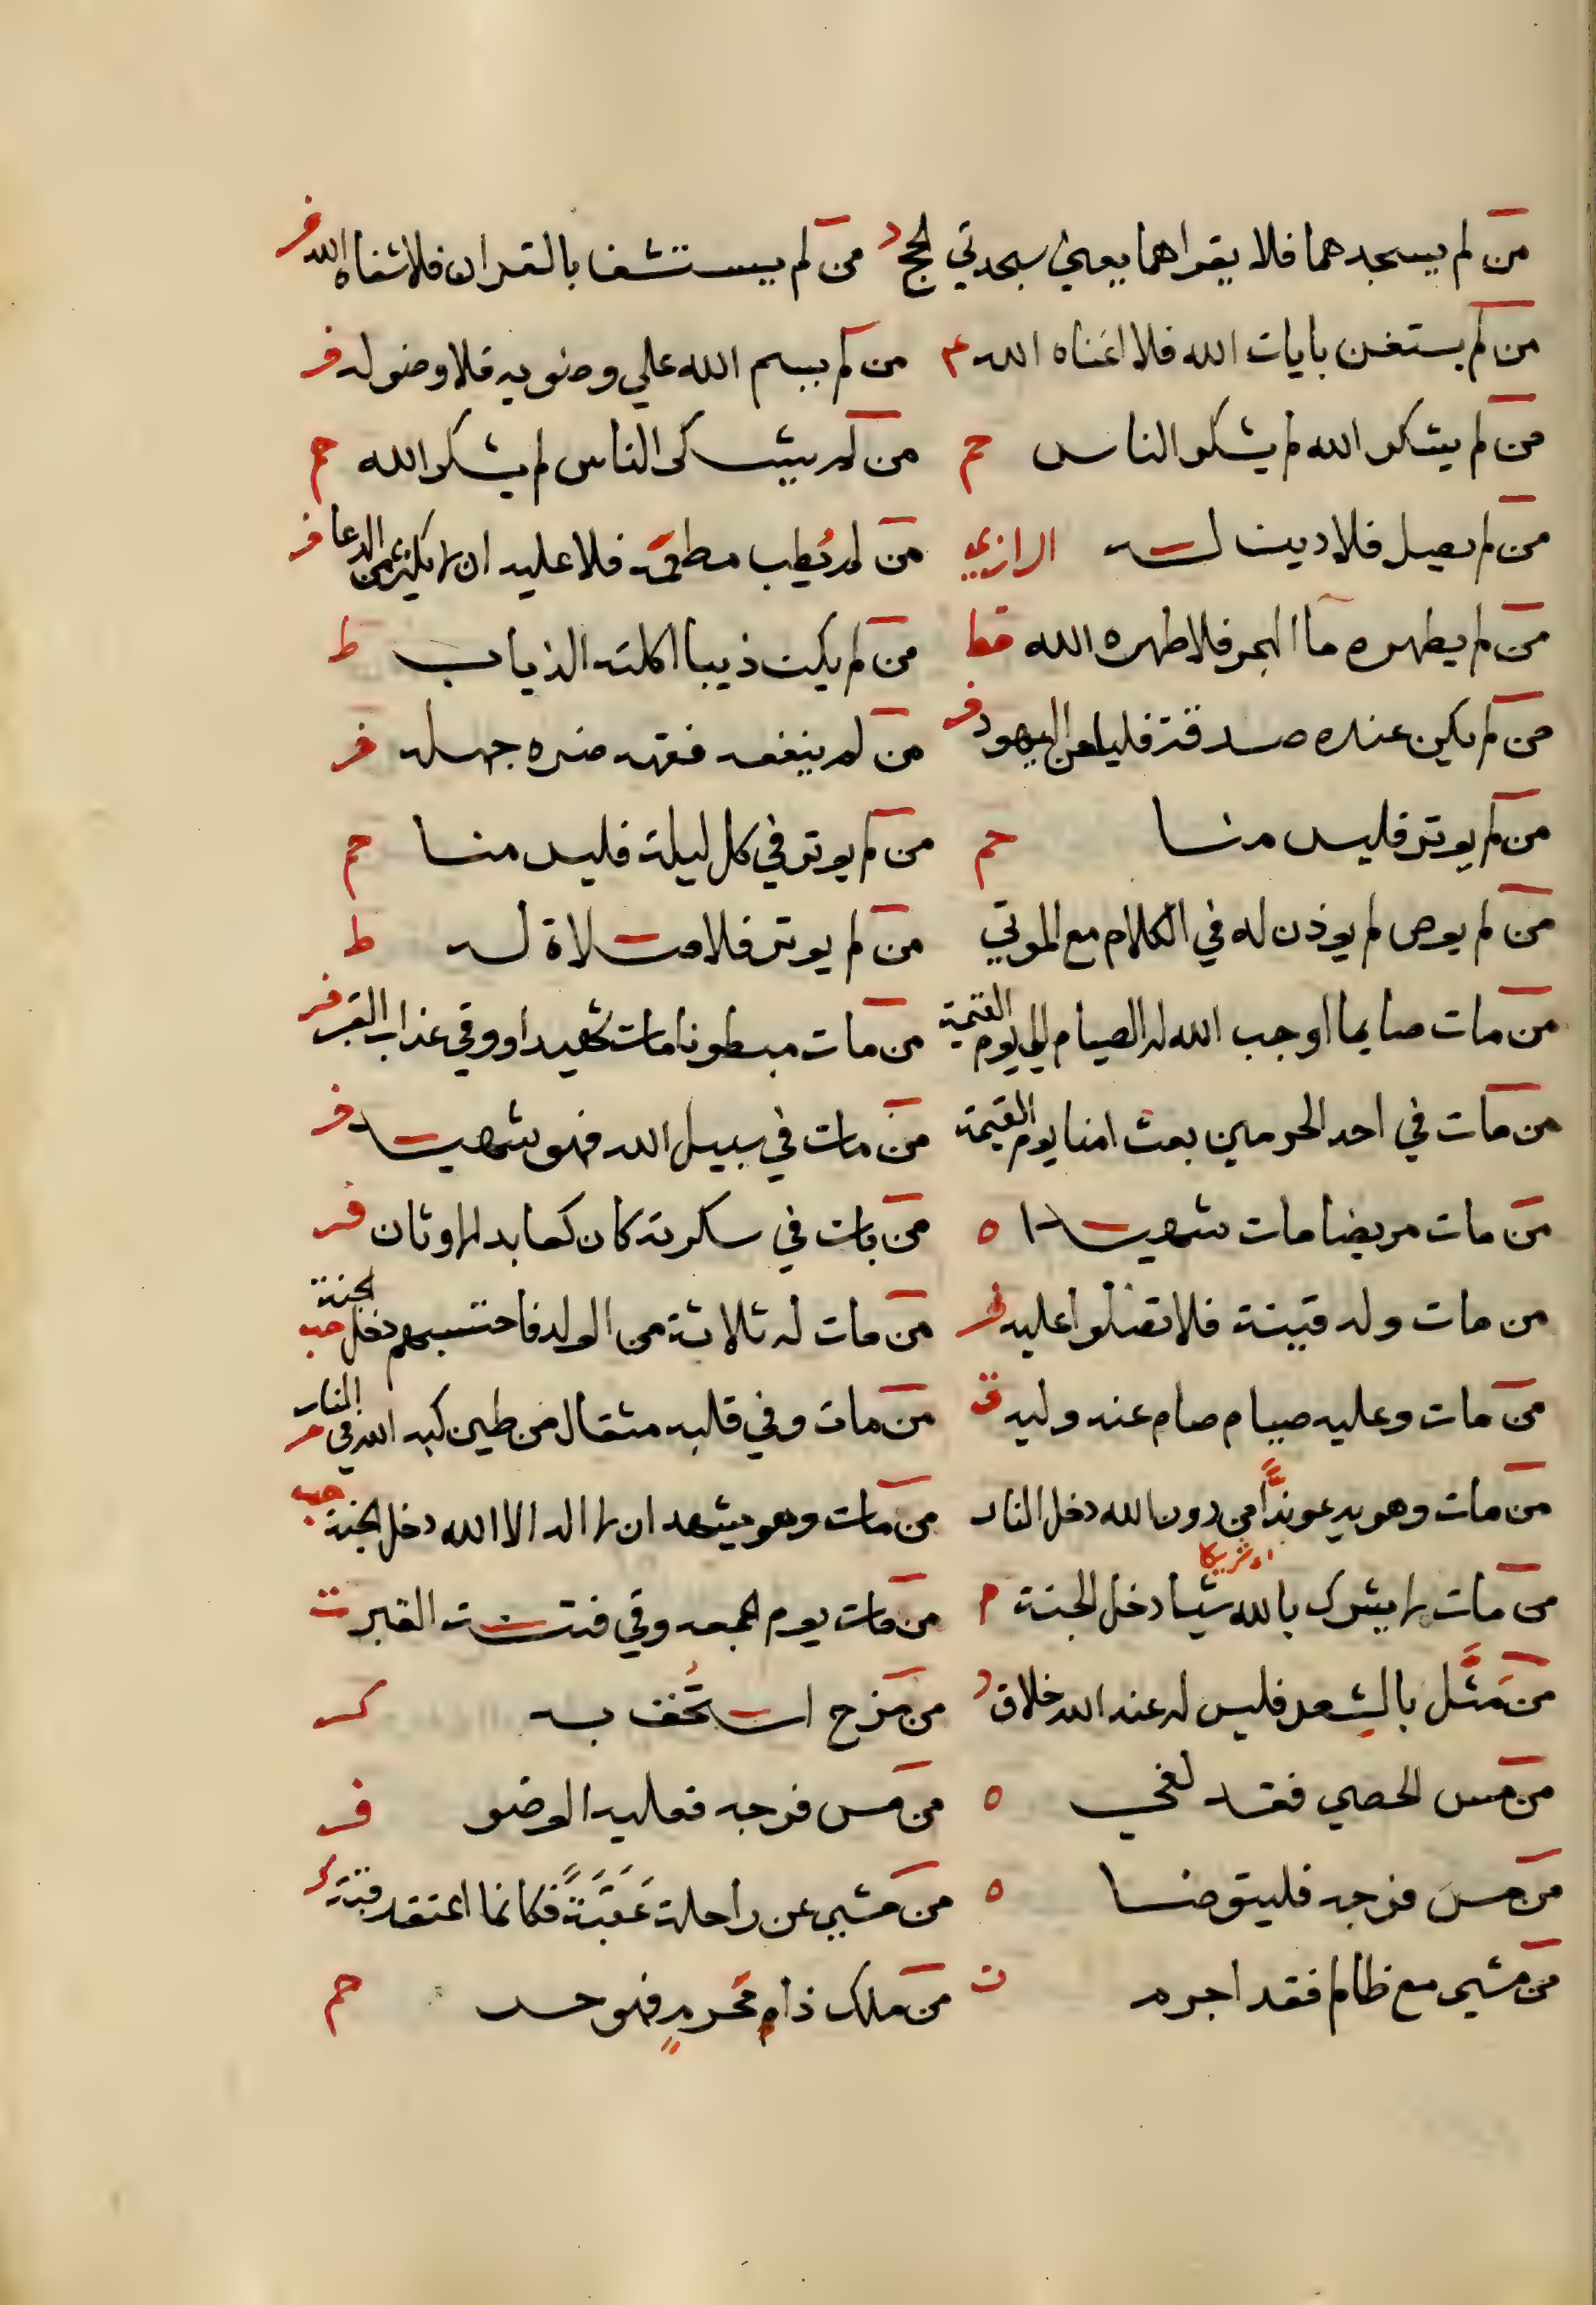 من لم يسجدهما فلا يقراهما يعني سجدتي الحج د من لم يستشف بالقران فلا شفاه الله فر
من لم يستغن بايات الله فلا اغناه الله م من لم يسم الله علي وضويه فلا وضو له فر
من لم يشكر الله لم يشكر الناس حم من لم يشكر الناس لم يشكر الله حم
من لم يصل فلا دين له الرازي من لم يُطِب مطعمه فلا عليه ان لا يكثر من الدعا فر
من لم يطهره ما البحر فلا طهره الله قط من لم يكن ذيبا اكلته الذياب ط
من لم يكن عنده صدقة فليلعن اليهود فر من لم ينفعه فقهه ضره جهله فر
من لم يوتر فليس منا حم من لم يوتر في كل ليلة فليس منا حم
من لم يوص لم يوذن له في الكلام مع الموتي من لم يوتر فلا صلاة له ط
من مات صايما اوجب الله له الصيام الي يوم القيمة من مات مبطونا مات شهيدا ووقي عذاب القبر فر
من مات في احد الحرمين بعث امنا يوم القيمة من مات في سبيل الله فهو شهيد فر
من مات مريضا مات شهيدا ه من بات في سكرته كان كعابد الاوثان فر
من مات وله قينة فلا تصلوا عليه فر من مات له ثلاثة من الولد فاحتسبهم دخل الجنة حب
من مات وعليه صيام صام عنه وليه ق من مات وفي قلبه مثقال من طين كبه الله في النار
من مات وهو يدعو ندًّا من دون الله دخل النار من مات وهو يشهد ان لا اله الا الله دخل الجنة حب
من مات لا يشرك بالله شيا دخل الجنة م من مات يوم الجمعه وقي فتنة القبر ت
من مَثَّل بالشعر فليس له عند الله خلاق من مزح استُخف به كر
من مس الحصي فقد لغي ه من مس فرجه فعليه الوضو فر
من مس فرجه فليتوضا ه من مشي عن راحلة عَقَبَةً فكانما اعتق رقبة كر
من مشي مع ظالم فقد اجرم من ملك ذا محرمٍ فهو حر حم